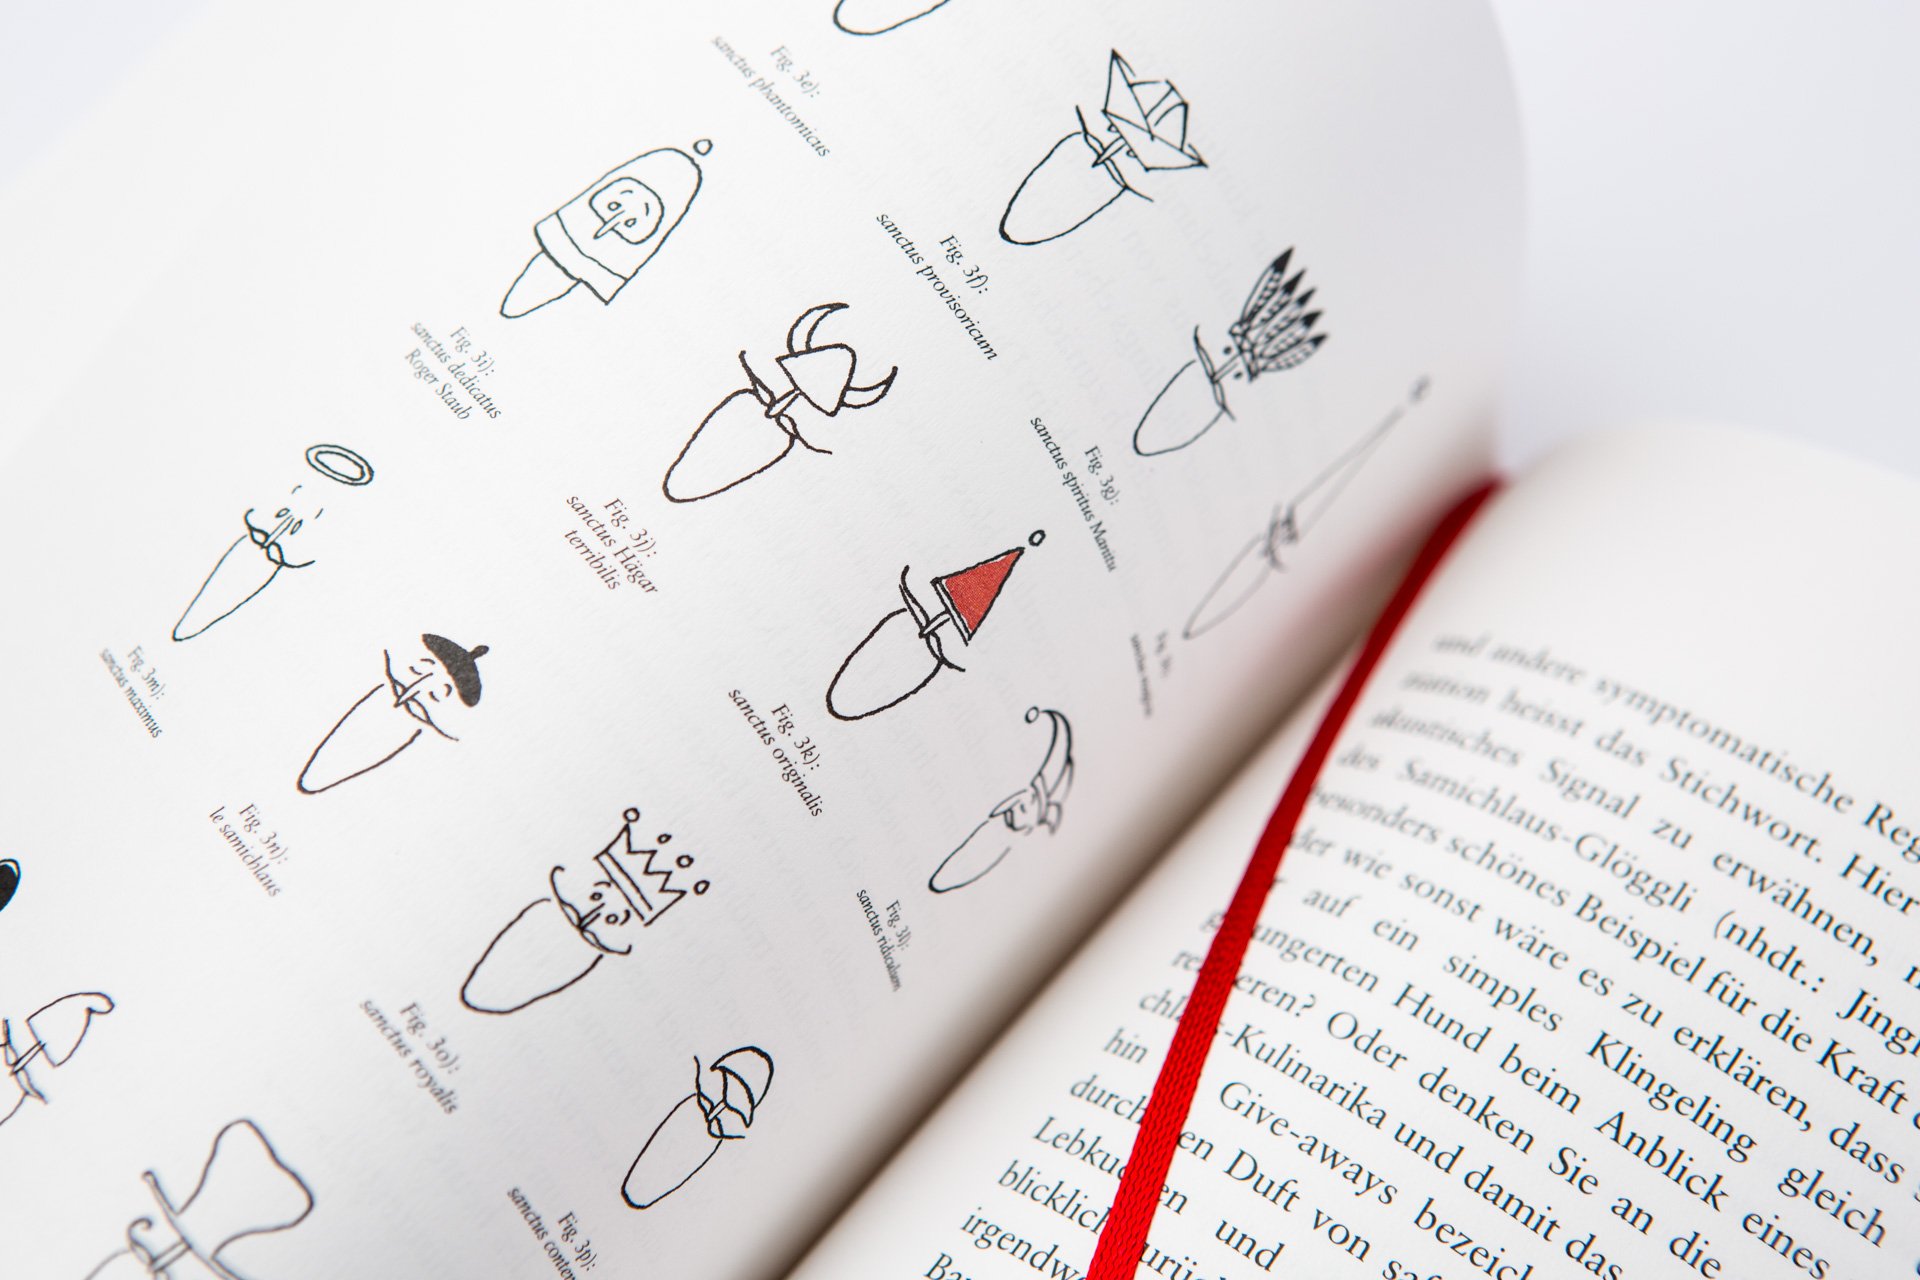 Fig. 3e):
sanctus phantomicus
Fig. 3f):
sanctus provisoricum
Fig. 3g):
sanctus spiritus Manitu
Fig. 3i):
sanctus dedicatus
Roger Staub
Fig. 3j):
sanctus Hägar
terribilis
Fig. 3k):
sanctus originalis
Fig. 3l):
sanctus ridiculum
Fig. 3m):
sanctus maximus
Fig. 3n):
le samichlaus
Fig. 3o):
sanctus royalis
Fig. 3p):
sanctus
und andere symptomatische
heisst das Stichwort. Hier
akustisches Signal zu erwähnen,
des Samichlaus-Glöggli (nhdt.:
besonders schönes Beispiel für die Kraft
der wie sonst wäre es zu erklären, dass
auf ein simples Klingeling gleich
Hund beim Anblick eines
Oder denken Sie an die
-Kulinarika und damit das
hin Give-aways
Duft von
und